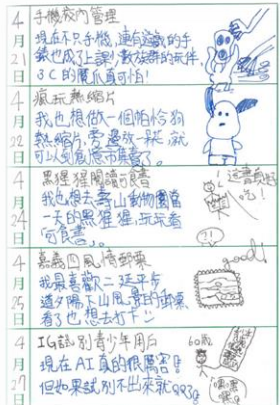 4月21日
手機校內管理
現在不只手機,連有遊戲的手
錶也成了上課少數族群的玩伴,
3C的魔爪真可怕!
4月22日
瘋玩熱縮片
我也想做一個帕恰狗
熱縮片,旁邊放一
可以到創意市集賣了。
4月24日
黑猩猩閱讀
我也想去壽山動物園當
一天的黑猩猩,玩玩看
這書真好吃!
4月25日
嘉義四風情郵票
我最喜歡二延平步
道夕陽下山風景的郵票
看了也想去打卡!
good!
4月27日
IG識別青少年用戶
現在AI真的很厲害
但如果試別不出來就QQ了
60歲
嘿嘿